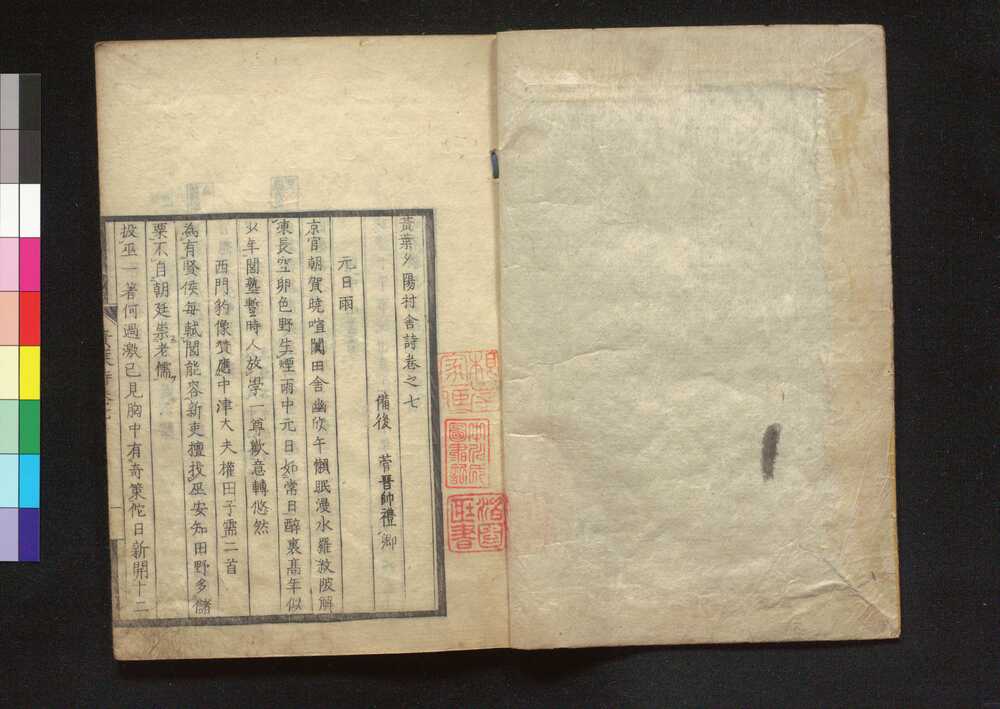 黃葉夕陽村舍詩卷之七
備後 菅晉帥禮卿
元日雨
京官朝賀曉喧闐田舍幽欣午懶眠漫水羅紋陂解
凍長空卵色野生煙雨中元日如常日醉裏高年似
少年閭塾暫時人放學一尊歡意轉悠然
西門豹像贊應中津大夫權田子需二首
為有賢侯每軾閭能容新吏擅投巫安知田野多儲
粟不自朝廷崇老儒
投巫一著何過激已見胸中有奇策佗日新開十二